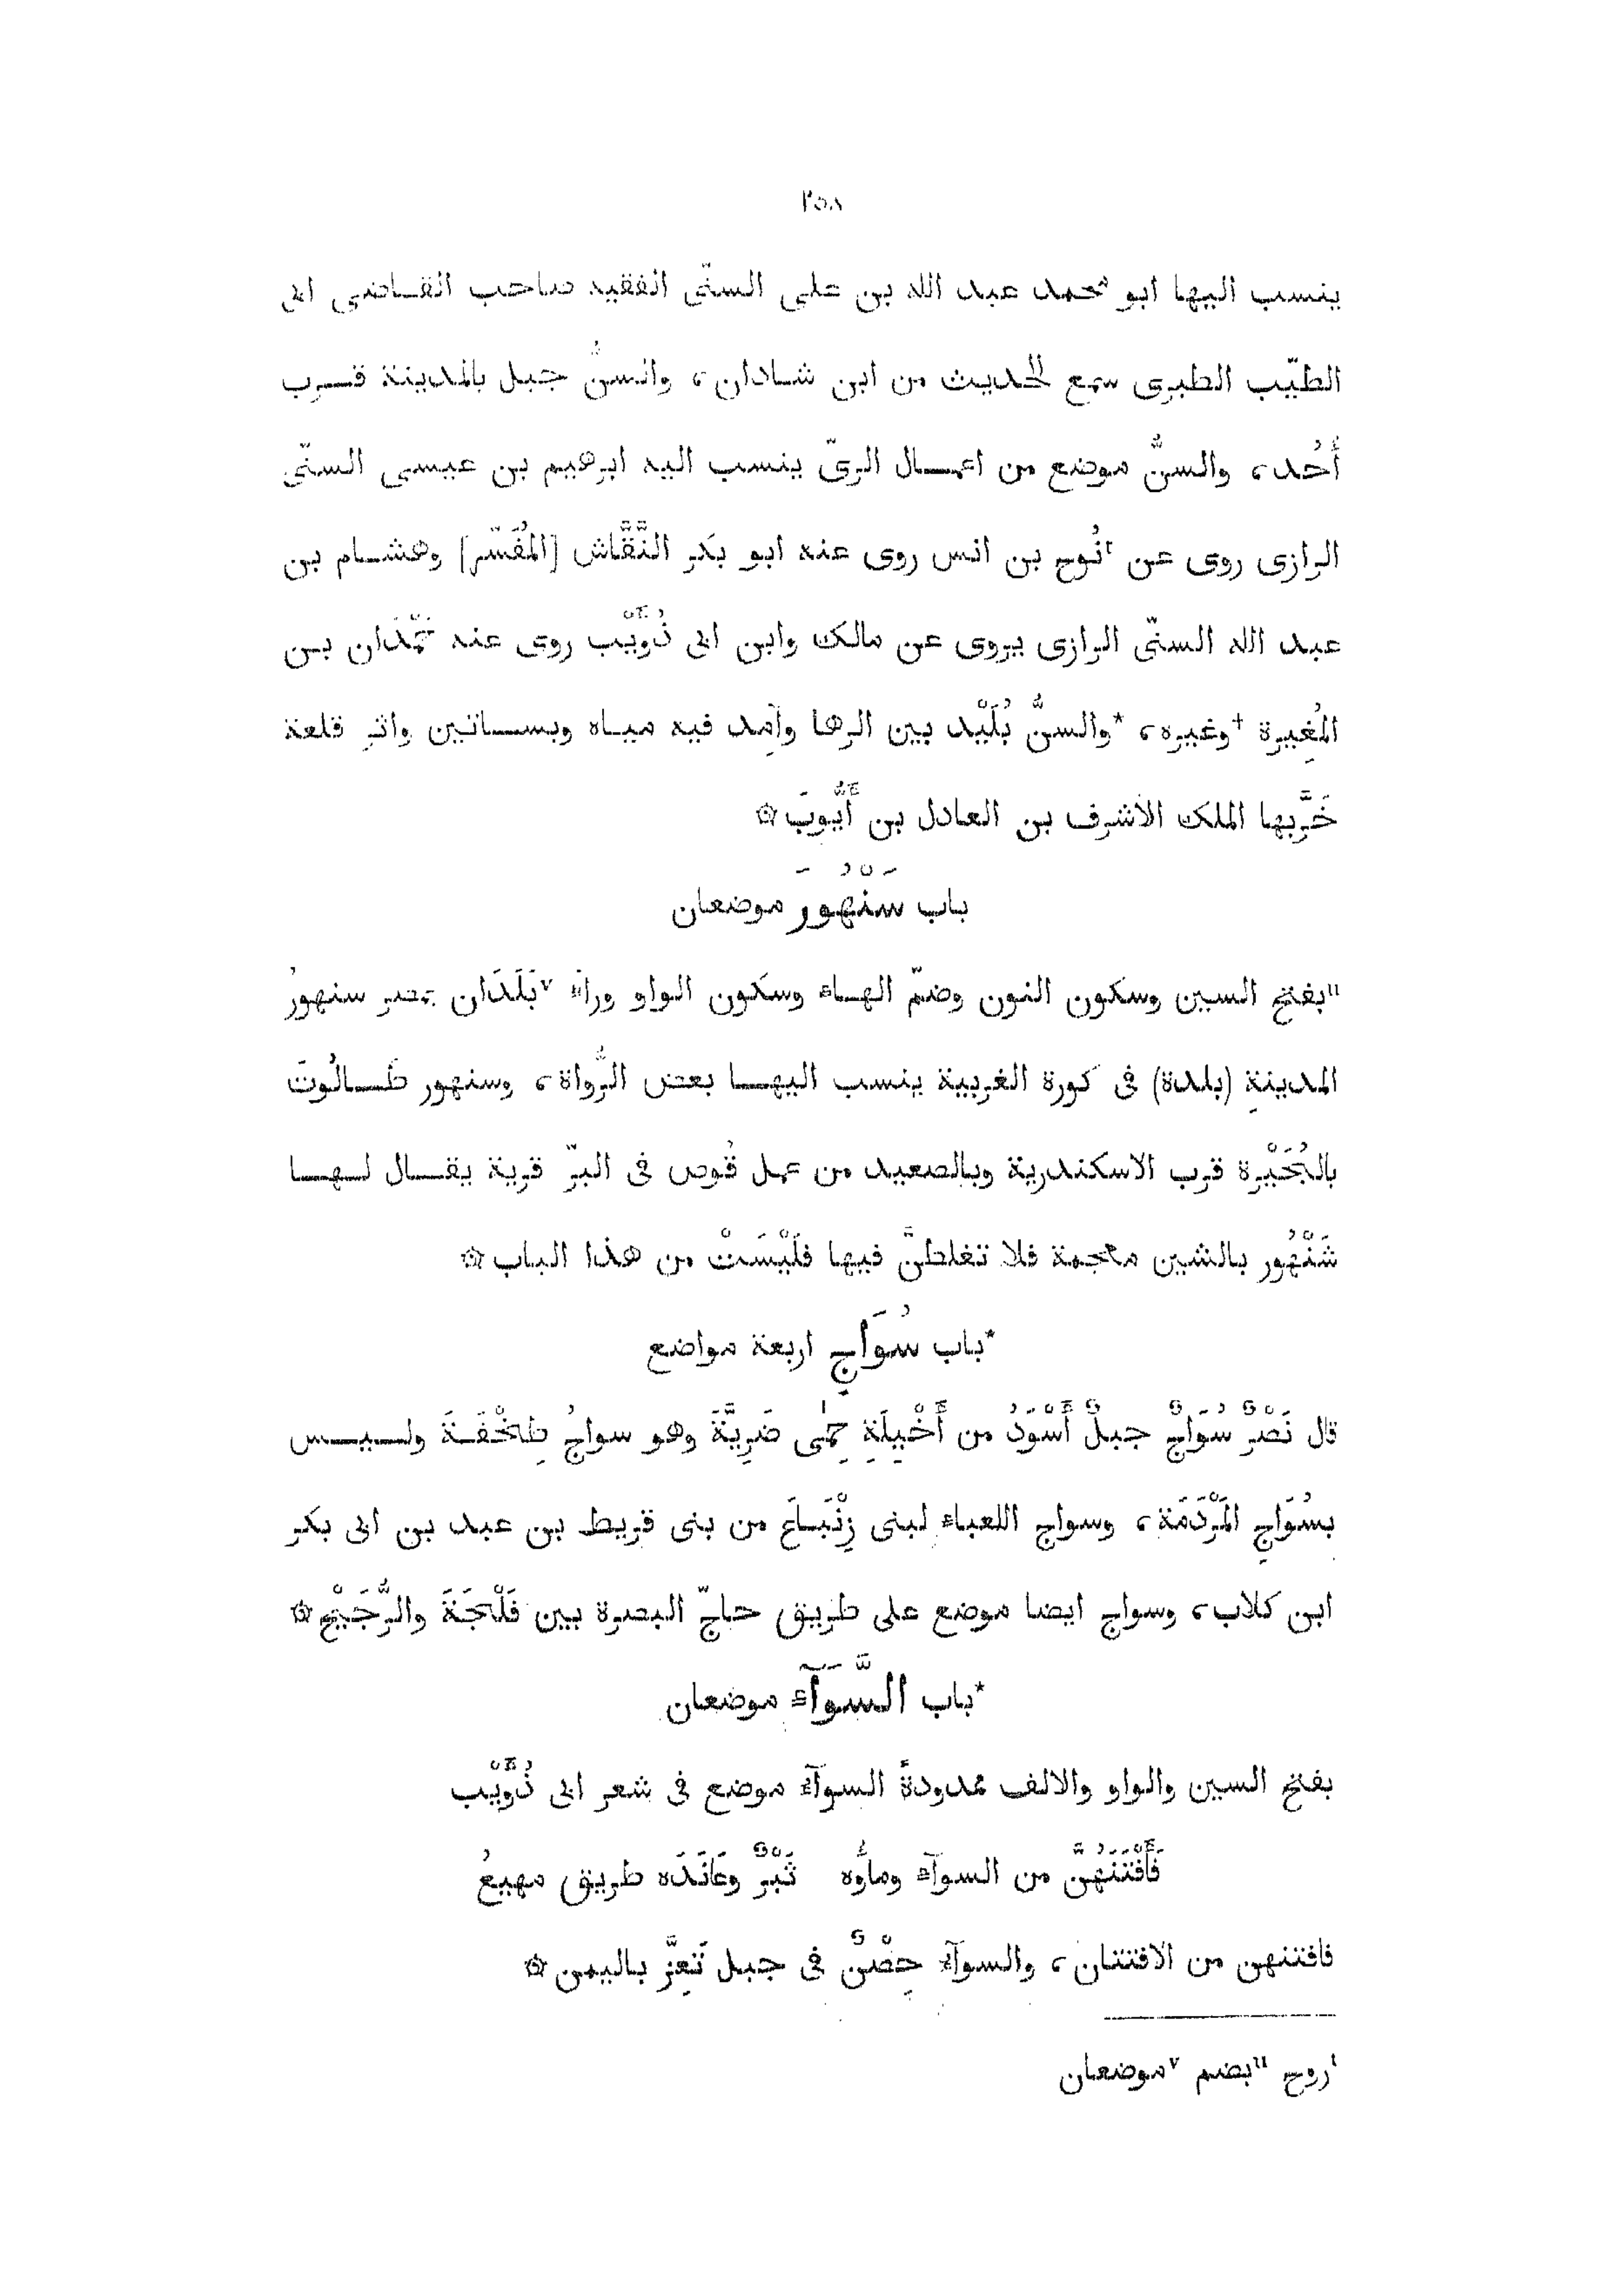 ٢٥٨
ينسب اليها ابو محمد عبد الله بن على السنّى الفقيه صاحب القاضى ابى
الطيّب الطبرى سمع الحديث من ابن شادان، والسنُّ جبل بالمدينة قرب
أُحُد، والسنُّ موضع من اعمال الرىّ ينسب اليه ابرهيم بن عيسى السنّى
الرازى روى عن ‎ᵗنُوح بن انس روى عنه ابو بكر النَّقَّاش [المُفَسّر] وهشام بن
عبد الله السنّى الرازى يروى عن مالك وابن ابى ذُوَّيْب روى عنه حَمْدَان بن
المُغِيرة †وغيره، *والسنُّ بُلَيْد بين الرها وآمِد فيه مياه وبساتين واثر قلعة
خَرَّبها الملك الاشرف بن العادل بن أَيُّوبَ ۞
باب سَنْهُورَ موضعان
ᵘبفتح السين وسكون النون وضمّ الهاء وسكون الواو وراء ᵛبَلَدَان بمصر سنهورُ
المدينةِ (بلدة) فى كورة الغربية ينسب اليها بعض الرُّواة، وسنهور طالُوتَ
بالبُحَيْرة قرب الاسكندرية وبالصعيد من عمل قُوص فى البرّ قرية يقال لها
شَنْهُور بالشين معجمة فلا تغلطنَّ فيها فلَيْسَتْ من هذا الباب ۞
*باب سُوَاجٍ اربعة مواضع
قال نَصْرٌ سُوَاجٌ جبلٌ أَسْوَدُ من أَخْيِلَةِ حِمَى ضَرِيَّةَ وهو سواجُ طِخْفَةَ وليس
بسُوَاجِ المَرْدَمَة، وسواج اللعباء لبنى زِنْبَاعَ من بنى قريط بن عبد بن ابى بكر
ابن كلاب، وسواج ايضا موضع على طريق حاجّ البصرة بين فَلْجَةَ والرُّجَيْج ۞
*باب السَّوَآء موضعان
بفتح السين والواو والالف ممدودةً السوآء موضع فى شعر ابى ذُوَّيْب
فَأَفْتَنَهُنَّ من السوآء وماؤُه ثَبْرٌ وعَانَدَه طريق مهيعُ
فافتنهن من الافتنان، والسوآء حِصْنٌ فى جبل تَعِزَّ باليمن ۞
ᵗروح ᵘبضم ᵛموضعان